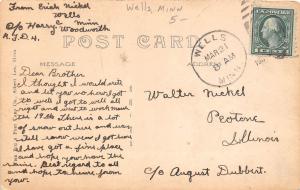 From Erich Nickel
Wells
Minn
c/o Harry C. Woodworth
R.F.D. 4.
Wells, MINN
5-
POST CARD
WELLS
MAR 31
AM
MINN.
ADDRESS
Dear Brother
I thought I would write
and let you no how I got
to wells. I got to well all
right and went to work
the 19th. There is a lot
of snow out here and
Tell how I
have got a fine place
and hope you have the
same. Best regard to all
and hope to hear from
you.
Walter Nickel
Peotone
Illinois
c/o August Dubbert.